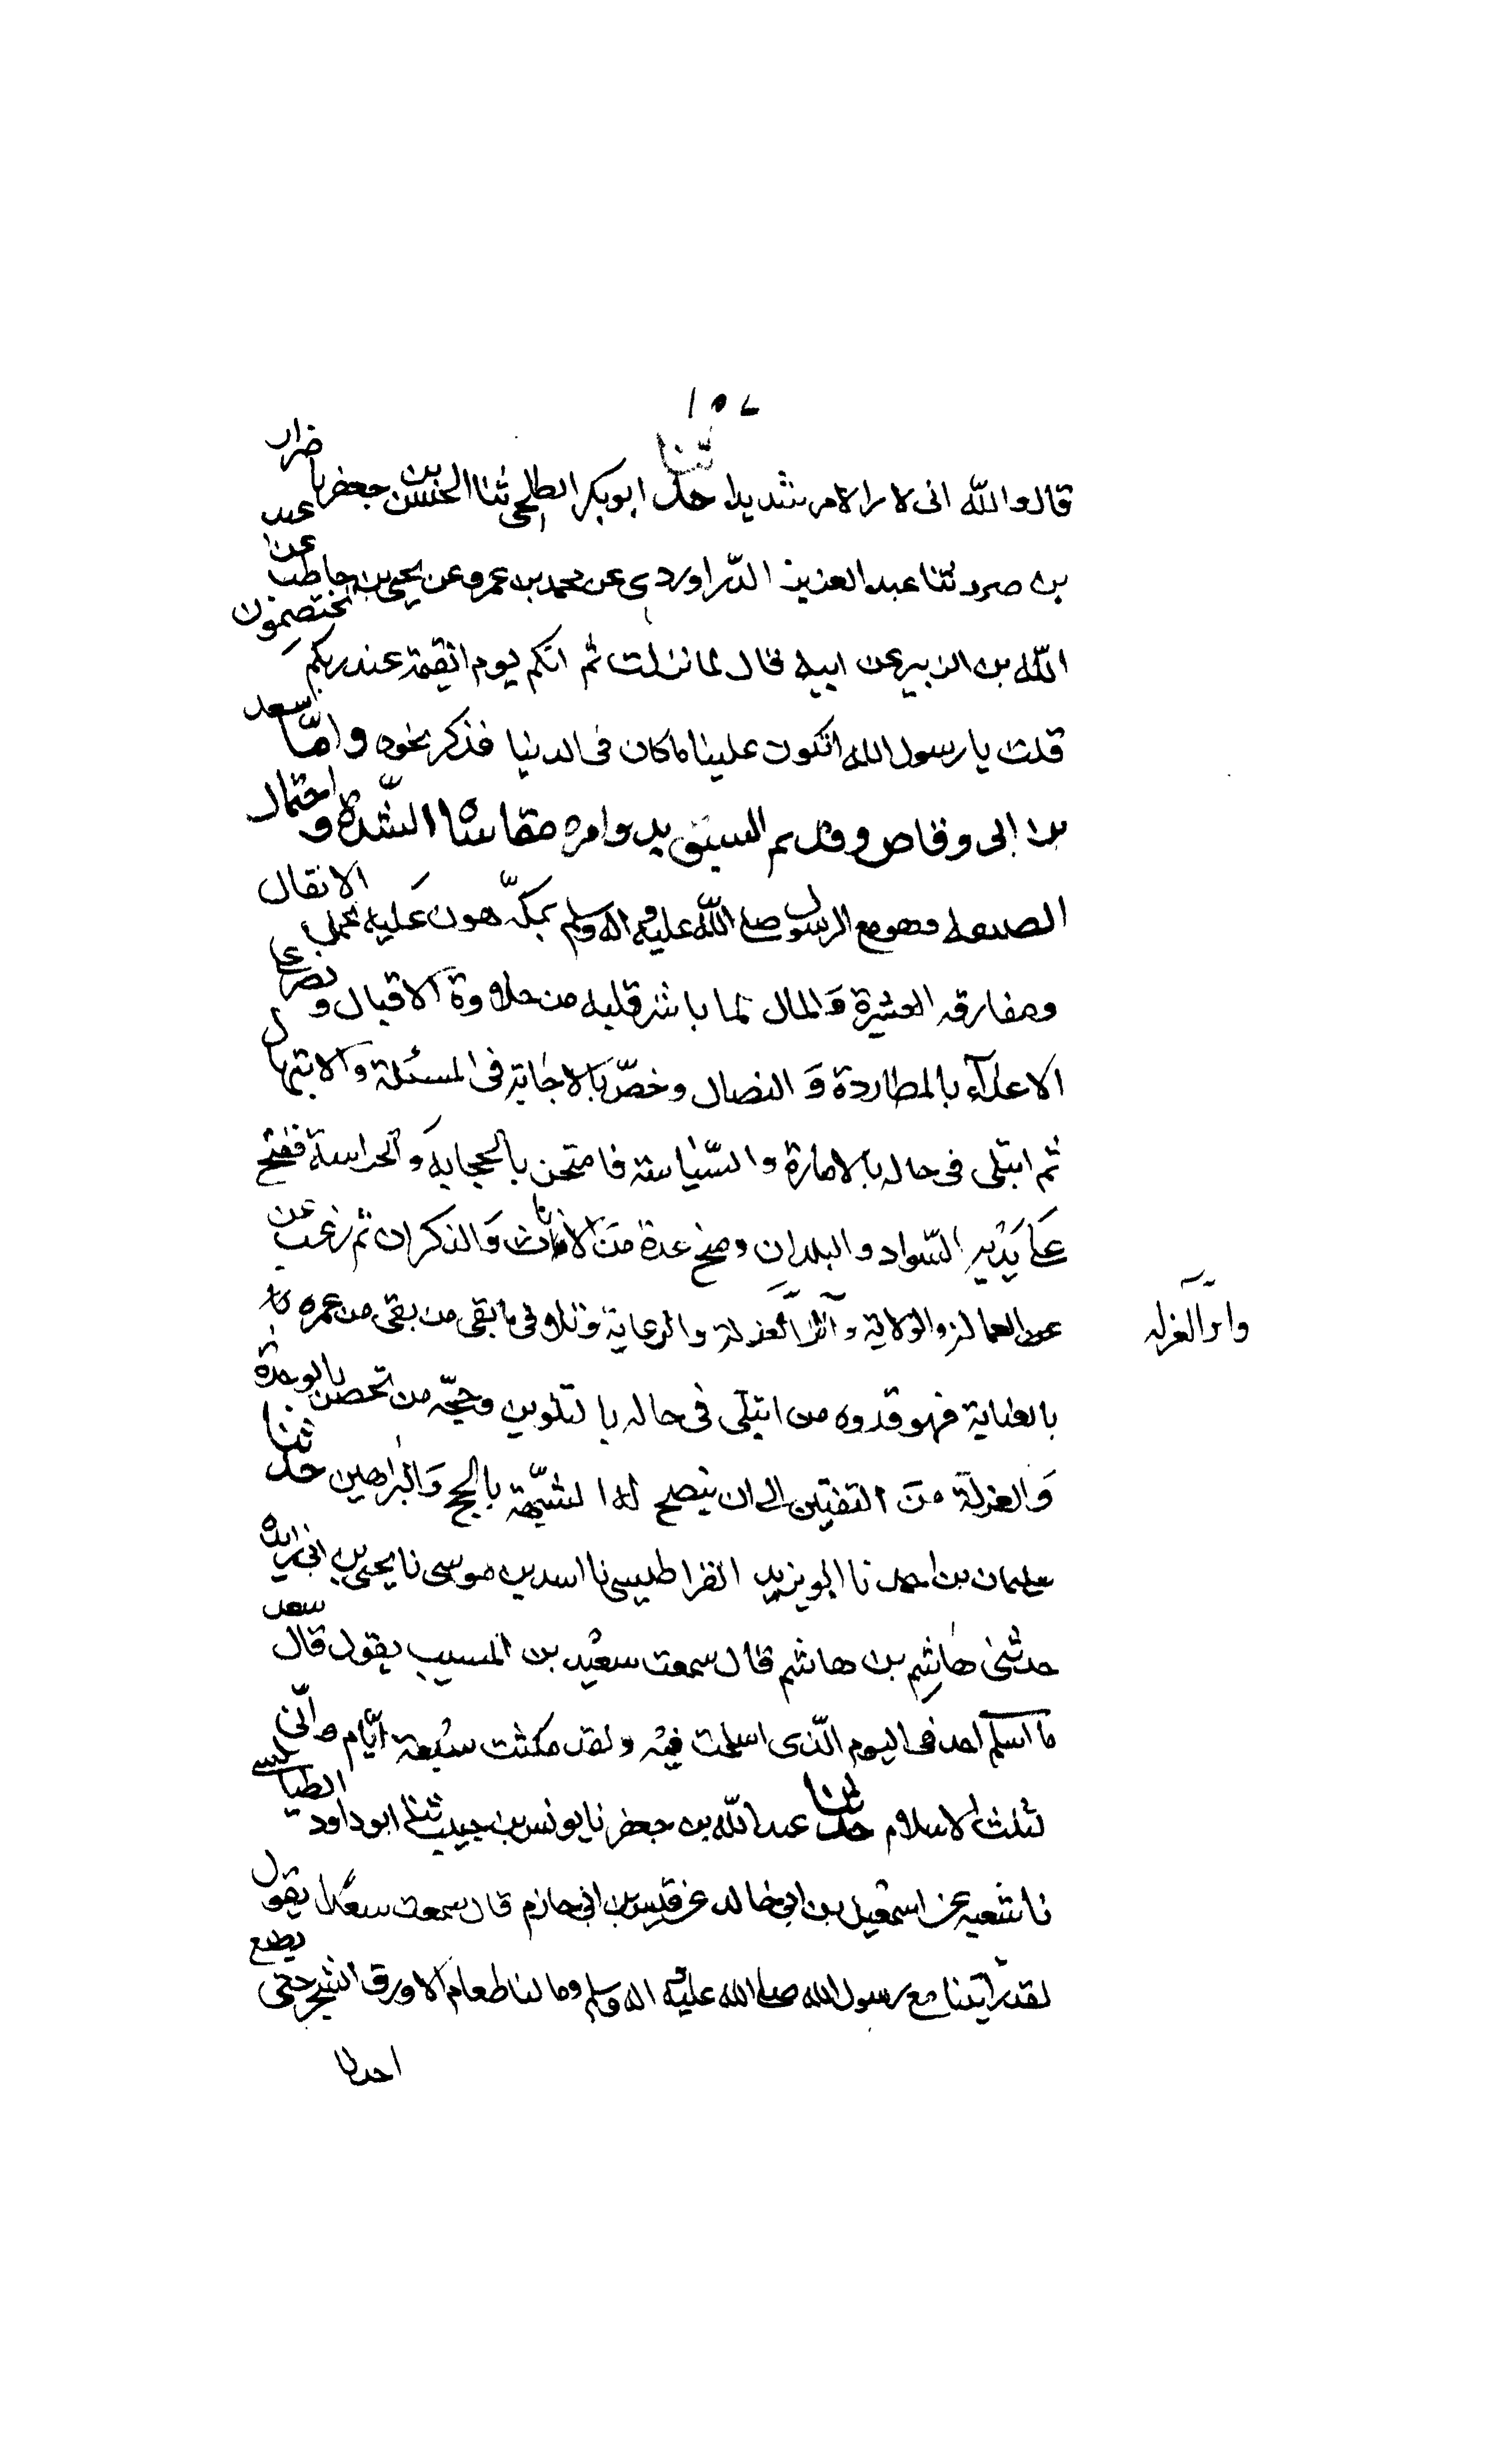 ١٥٧
قال والله انى لا را الامر شديدا حدثنا ابو بكر الطلحى ثنا الحسن بن جعفر نا ضرار
بن صرد ثنا عبد العزيز الدراوردى عن محمد بن عمرو عن يحيى بن حاطب عن عبد
الله بن الزبير عن ابيه قال لما نزلت ثم انكم يوم القيمة عند ربكم تختصمون
قلت يا رسول الله اتكون علينا ما كان فى الدنيا فذكر نحوه وامّا سعد
بن ابى وقاص وقديم السبق بدو امره مقاساة الشدة و احتمال
الصيقة وهو مع الرسول صلى الله عليه واله وسلم بمكّة هون عليه تحمل الاثقال
ومفارقه العشيرة والمال لما باشر قلبه من حلاوة الاقبال و نصر على
الاعداء بالمطاردة و النضال وخصّ بالاجابة فى المسئلة والابتهال
ثم ابتلى فى حاله بالامارة والسّياسة فامتحن بالحجابة والحراسة ففتح
على يديه السّواد والبلدان ومنح عدة من الاناث والذكران ثم رغب عن
العمالة والولاية و آثر العزلة والرعاية وتلافى ما بقى من بقى من عمره
واثر العزله
بالعناية فهو قدوه من ابتلى فى حاله بالتلوين وحجّه من تحصن بالوحدة
والعزلة من التفتين الى ان يتضح له الشبهة بالحجج والبراهين حدثنا
سليمان بن احمد نا ابو يزيد القراطيسى نا اسد بن موسى نا يحيى بن ابى زايده
حدثنى هاشم بن هاشم قال سمعت سعيد بن المسيب يقول قال سعد
ما اسلم احد فى اليوم الّذى اسلمت فيه ولقد مكثت سبعة ايّام وانّى
لثلث الاسلام حدثنا عبد الله بن جعفر نا يونس بن حبيب ثنا ابو داود الطيالسى
نا شعبه عن اسمعيل بن ابى خالد عن قيس بن ابى حازم قال سمعت سعدا يقول
لقد رايتنا مع رسول الله صلى الله عليه واله وسلم وما لنا طعام الا ورق الشجر حتى يضع
احدنا